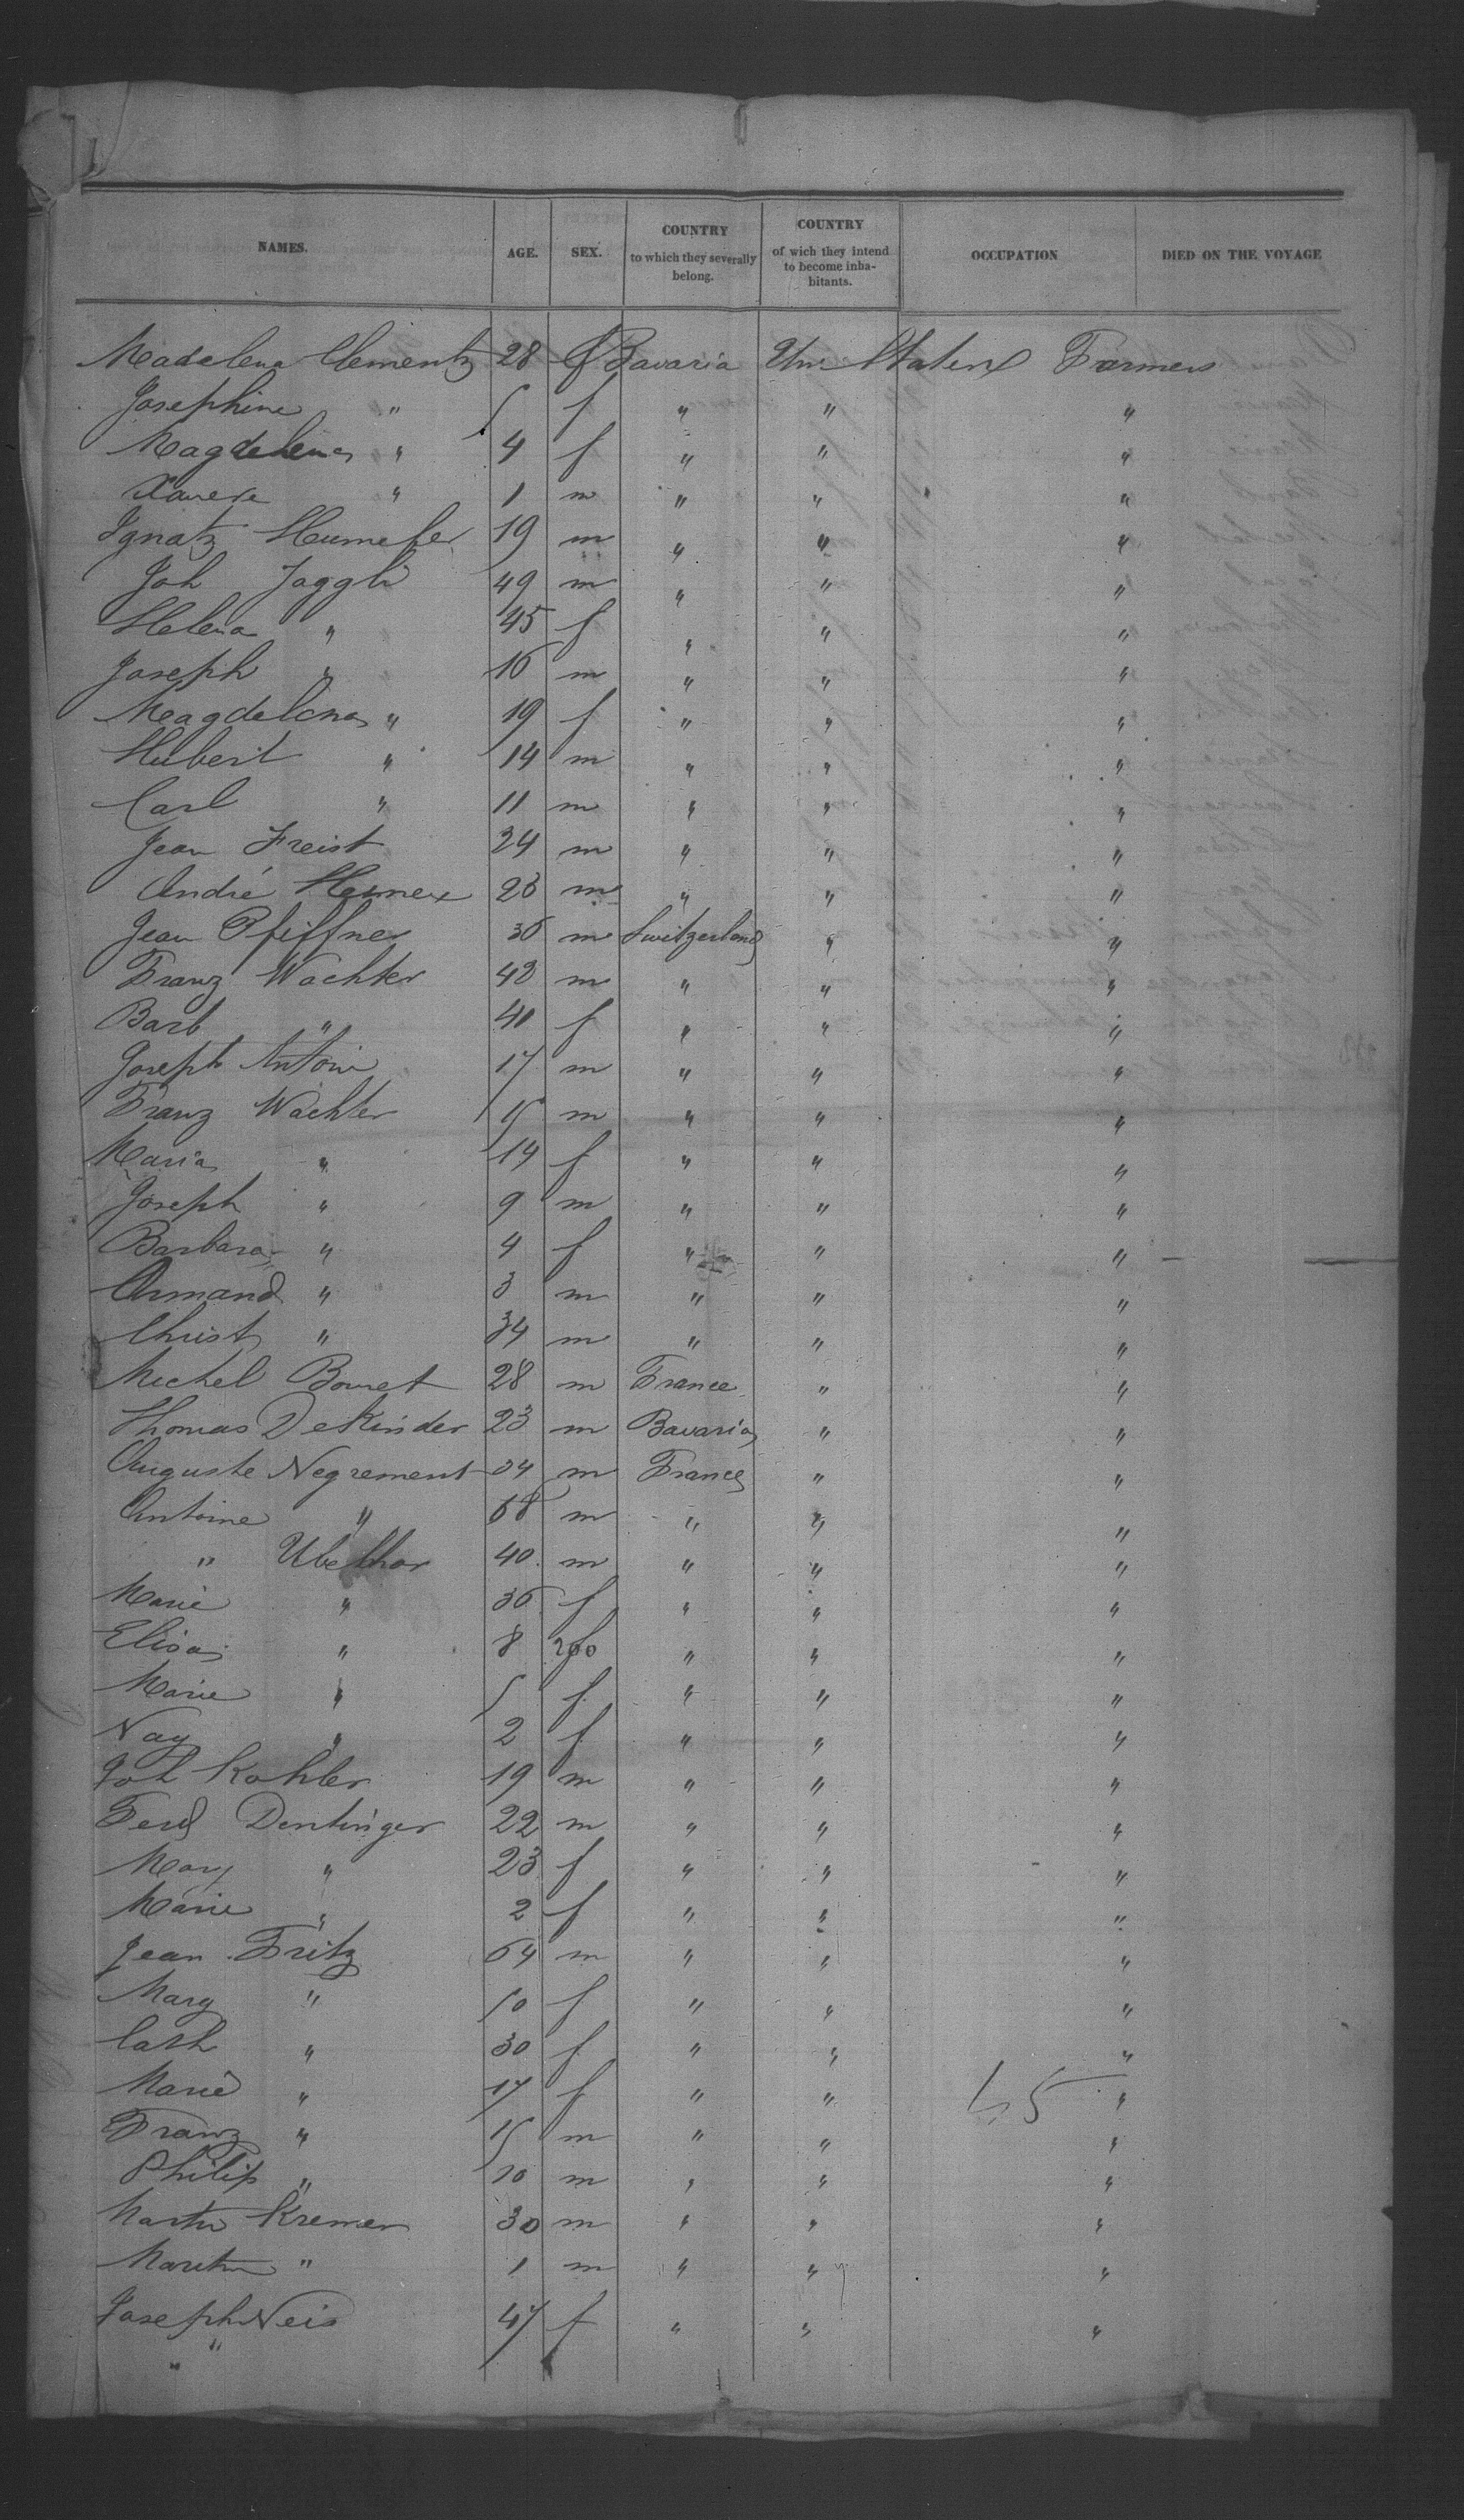 NAMES. AGE. SEX. COUNTRY to which they severally belong. COUNTRY of wich they intend to become inhabitants. OCCUPATION DIED ON THE VOYAGE
Madelena Clementz 28 f Bavaria Un. States Farmers
Josephine " 5 f " " "
Magdelena " 4 f " " "
Xavere " 1 m " " "
Ignatz 19 m " " "
Joh Jaggli 49 m " " "
Helena " 45 f " " "
Joseph " 16 m " " "
Magdelena " 19 f " " "
Hubert " 14 m " " "
Carl " 11 m " " "
Jean Freist 24 m " " "
André 23 m " " "
Jean Pfiffner 36 m Switzerland " "
Franz Wachter 42 m " " "
Barb " 40 f " " "
Joseph Antoin 17 m " " "
Franz Wachter 15 m " " "
Maria " 14 f " " "
Joseph " 9 m " " "
Barbara " 4 f " " "
Armand " 3 m " " "
Christ " 34 m " " "
Michel Bouret 28 m France " "
Thomas DeKinder 23 m Bavaria " "
Auguste Negrement 34 m France " "
Antoine " 68 m " " "
" Ubelhor 40 m " " "
Marie " 36 f " " "
Elisa " 8 f " " "
Marie " 5 f " " "
Nay " 2 f " " "
Joh Kohler 19 m " " "
Ferd Dentinger 22 m " " "
Mary " 23 f " " "
Marie " 2 f " " "
Jean Fritz 64 m " " "
Marg " 50 f " " "
Cath " 30 f " " "
Marie " 17 f " " "
45
Franz " 15 m " " "
Philip " 10 m " " "
Martin Kremer 30 m " " "
Martin " 1 m " " "
Joseph Neis 47 f " " "
" "